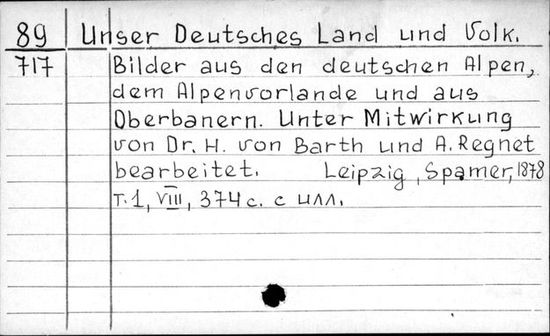 89 Unser Deutsches Land und Volk.
717 Bilder aus den deutschen Alpen,
dem Alpenvorlande und aus
Oberbanern. Unter Mitwirkung
von Dr. H. von Barth und A. Regnet
bearbeitet. Leipzig, Spamer, 1878
т.1, VIII, 374 с. с илл.